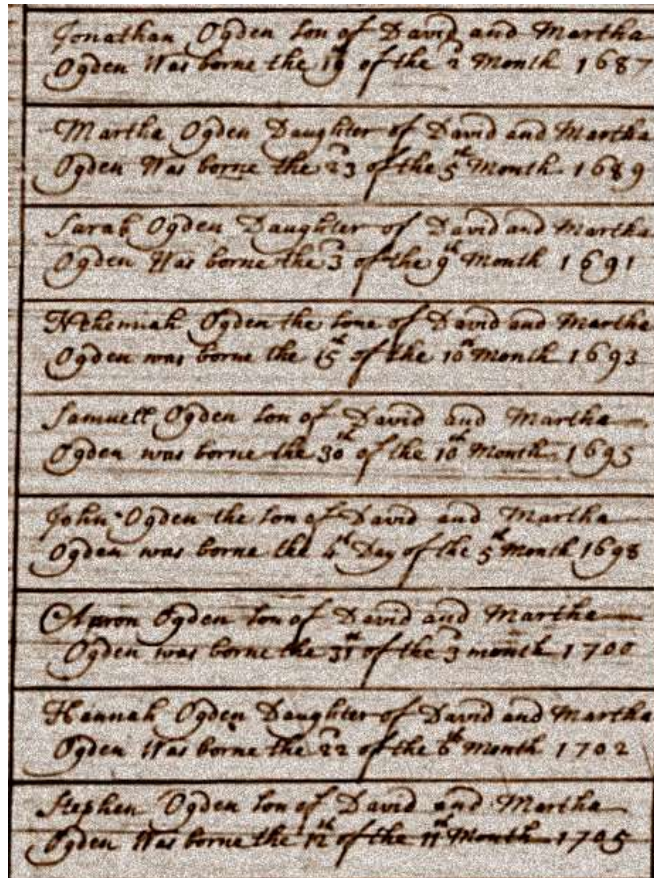 Jonathan Ogden son of David and Martha
Ogden Was borne the 19 of the 2 Month 1687
Martha Ogden Daughter of David and Martha
Ogden Was borne the 23 of the 5th Month 1689
Sarah Ogden Daughter of David and Martha
Ogden Was borne the 3 of the 9th Month 1691
Nehemiah Ogden the sone of David and Martha
Ogden was borne the 15th of the 10th Month 1693
Samuell Ogden son of David and Martha
Ogden was borne the 30th of the 10th Month 1695
John Ogden the son of David and Martha
Ogden was borne the 4th Day of the 5th Month 1698
Aaron Ogden son of David and Martha
Ogden was borne the 31st of the 3 month 1700
Hannah Ogden Daughter of David and Martha
Ogden Was borne the 22 of the 6th Month 1702
Stephen Ogden son of David and Martha
Ogden Was borne the 12th of the 11th Month 1705